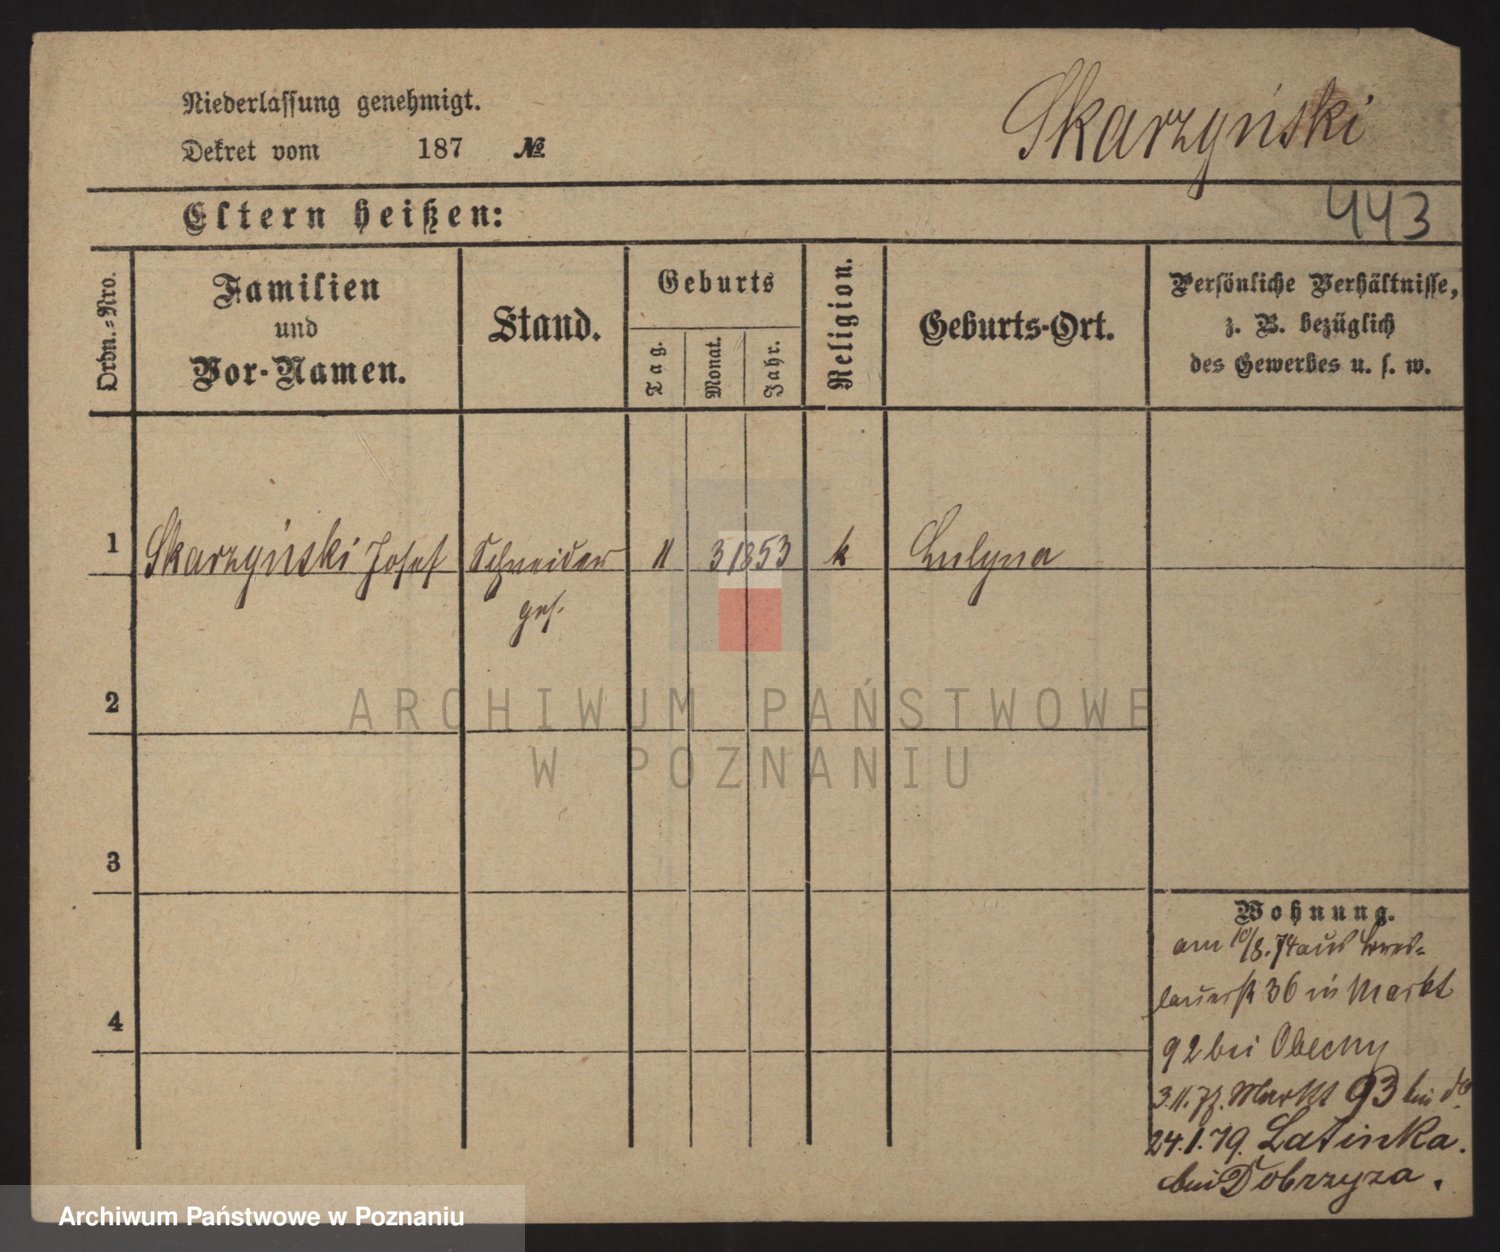 Niederlassung genehmigt.
Dekret vom 187 №
Skarzyński
443
Eltern heißen:
Ordn.-Nro.
Familien
und
Vor-Namen.
Stand.
Geburts
Tag.
Monat.
Jahr.
Religion.
Geburts-Ort.
Persönliche Verhältnisse,
z. B. bezüglich
des Gewerbes u. s. w.
1 Skarzyński Josef Schneider 11 3 1853 k Lulyna
ges.
2
3
4
Wohnung.
am 10/8.74 aus Bres-
lauerst 36 in Markt
92 bei Obecny
3.11. Markt 93 bei do
24.1.79. Latinka.
bei Dobrzyza.
ARCHIWUM PAŃSTWOWE
W POZNANIU
Archiwum Państwowe w Poznaniu